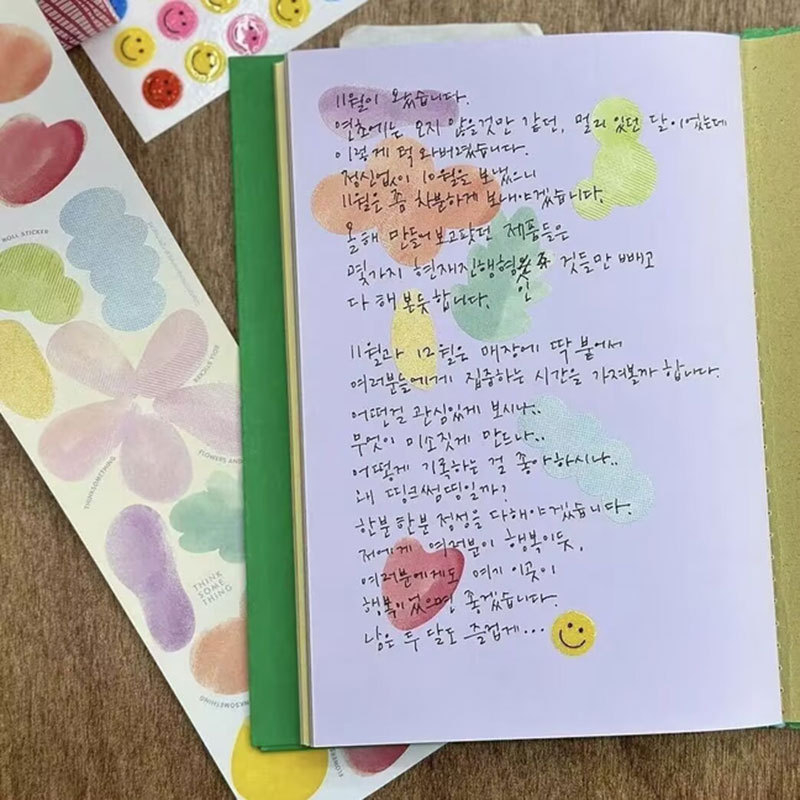 11월이 왔습니다.
연초에는 오지 않을것만 같던, 멀리 있던 달이었는데
이렇게 턱 와버렸습니다.
정신없이 10월을 보냈으니
11월은 좀 차분하게 보내야겠습니다.
올해 만들어보고팠던 제품들은
몇가지 현재진행형인 것들만 빼고
다 해본듯합니다.
11월과 12월은 매장에 딱 붙어서
여러분들에게 집중하는 시간을 가져볼까 합니다.
어떤걸 관심있게 보시나..
무엇이 미소짓게 만드나..
어떻게 기록하는 걸 좋아하시나..
왜 띵크썸띵일까?
한분 한분 정성을 다해야겠습니다.
저에게 여러분이 행복이듯,
여러분에게도 여기 이곳이
행복이었으면 좋겠습니다.
남은 두 달도 즐겁게...
ROLL STICKER
ROLL STICKER
FLOWERS AND
THINKSOMETHING
THINK
SOME
THING
THINKSOMETHING
FLOWERS